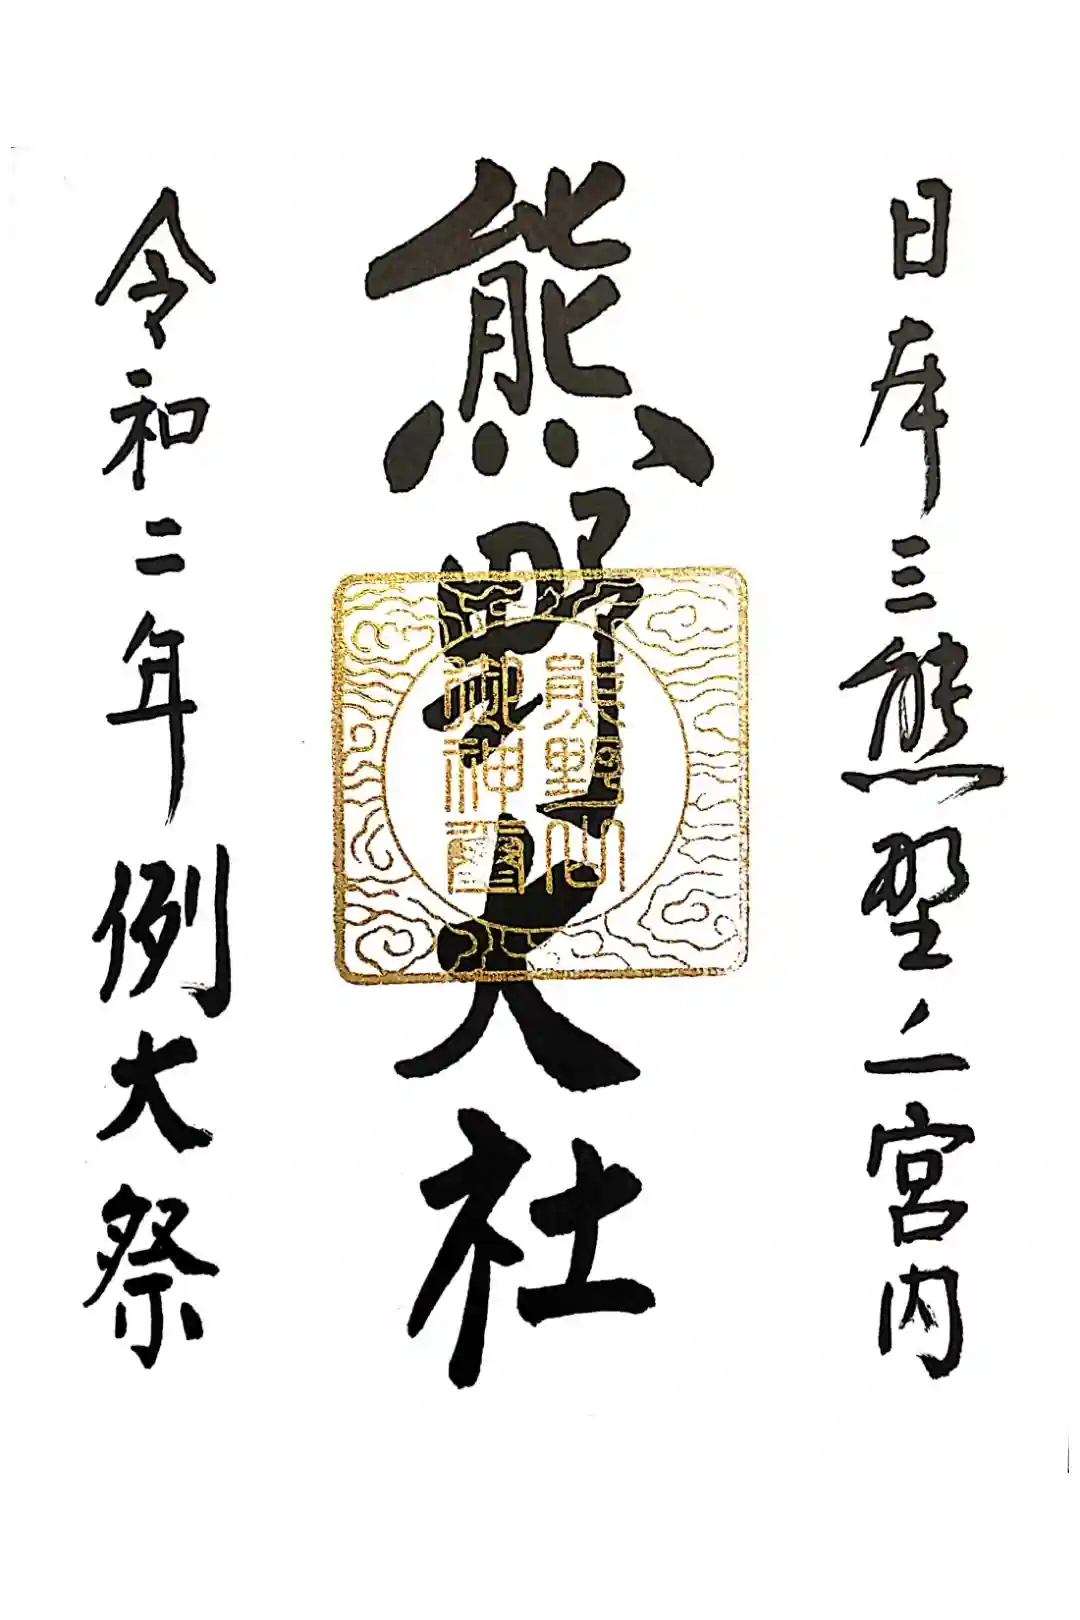 日本三熊野ノ一宮内
熊野大社
熊野山
御神
令和二年例大祭